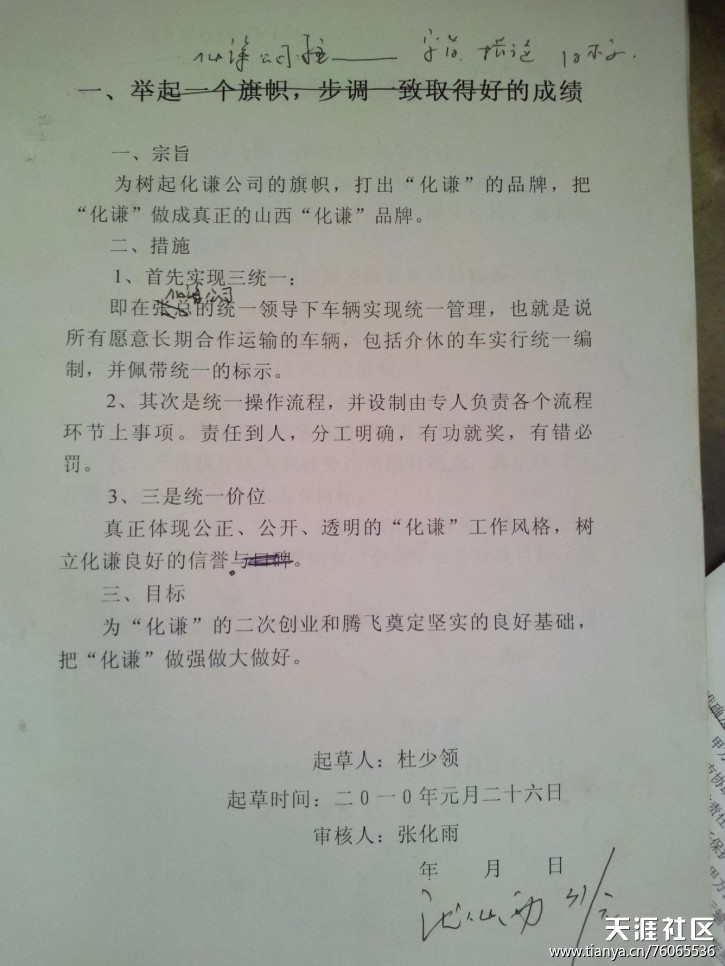 化谦公司
一、举起一个旗帜，步调一致取得好的成绩
一、宗旨
为树起化谦公司的旗帜，打出“化谦”的品牌，把
“化谦”做成真正的山西“化谦”品牌。
二、措施
1、首先实现三统一：
化谦公司
即在张总的统一领导下车辆实现统一管理，也就是说
所有愿意长期合作运输的车辆，包括介休的车实行统一编
制，并佩带统一的标示。
2、其次是统一操作流程，并设制由专人负责各个流程
环节上事项。责任到人，分工明确，有功就奖，有错必
罚。
3、三是统一价位
真正体现公正、公开、透明的“化谦”工作风格，树
立化谦良好的信誉与口碑。
三、目标
为“化谦”的二次创业和腾飞奠定坚实的良好基础，
把“化谦”做强做大做好。
起草人：杜少领
起草时间：二0一0年元月二十六日
审核人：张化雨
年 月 日
天涯社区
www.tianya.cn/76065536